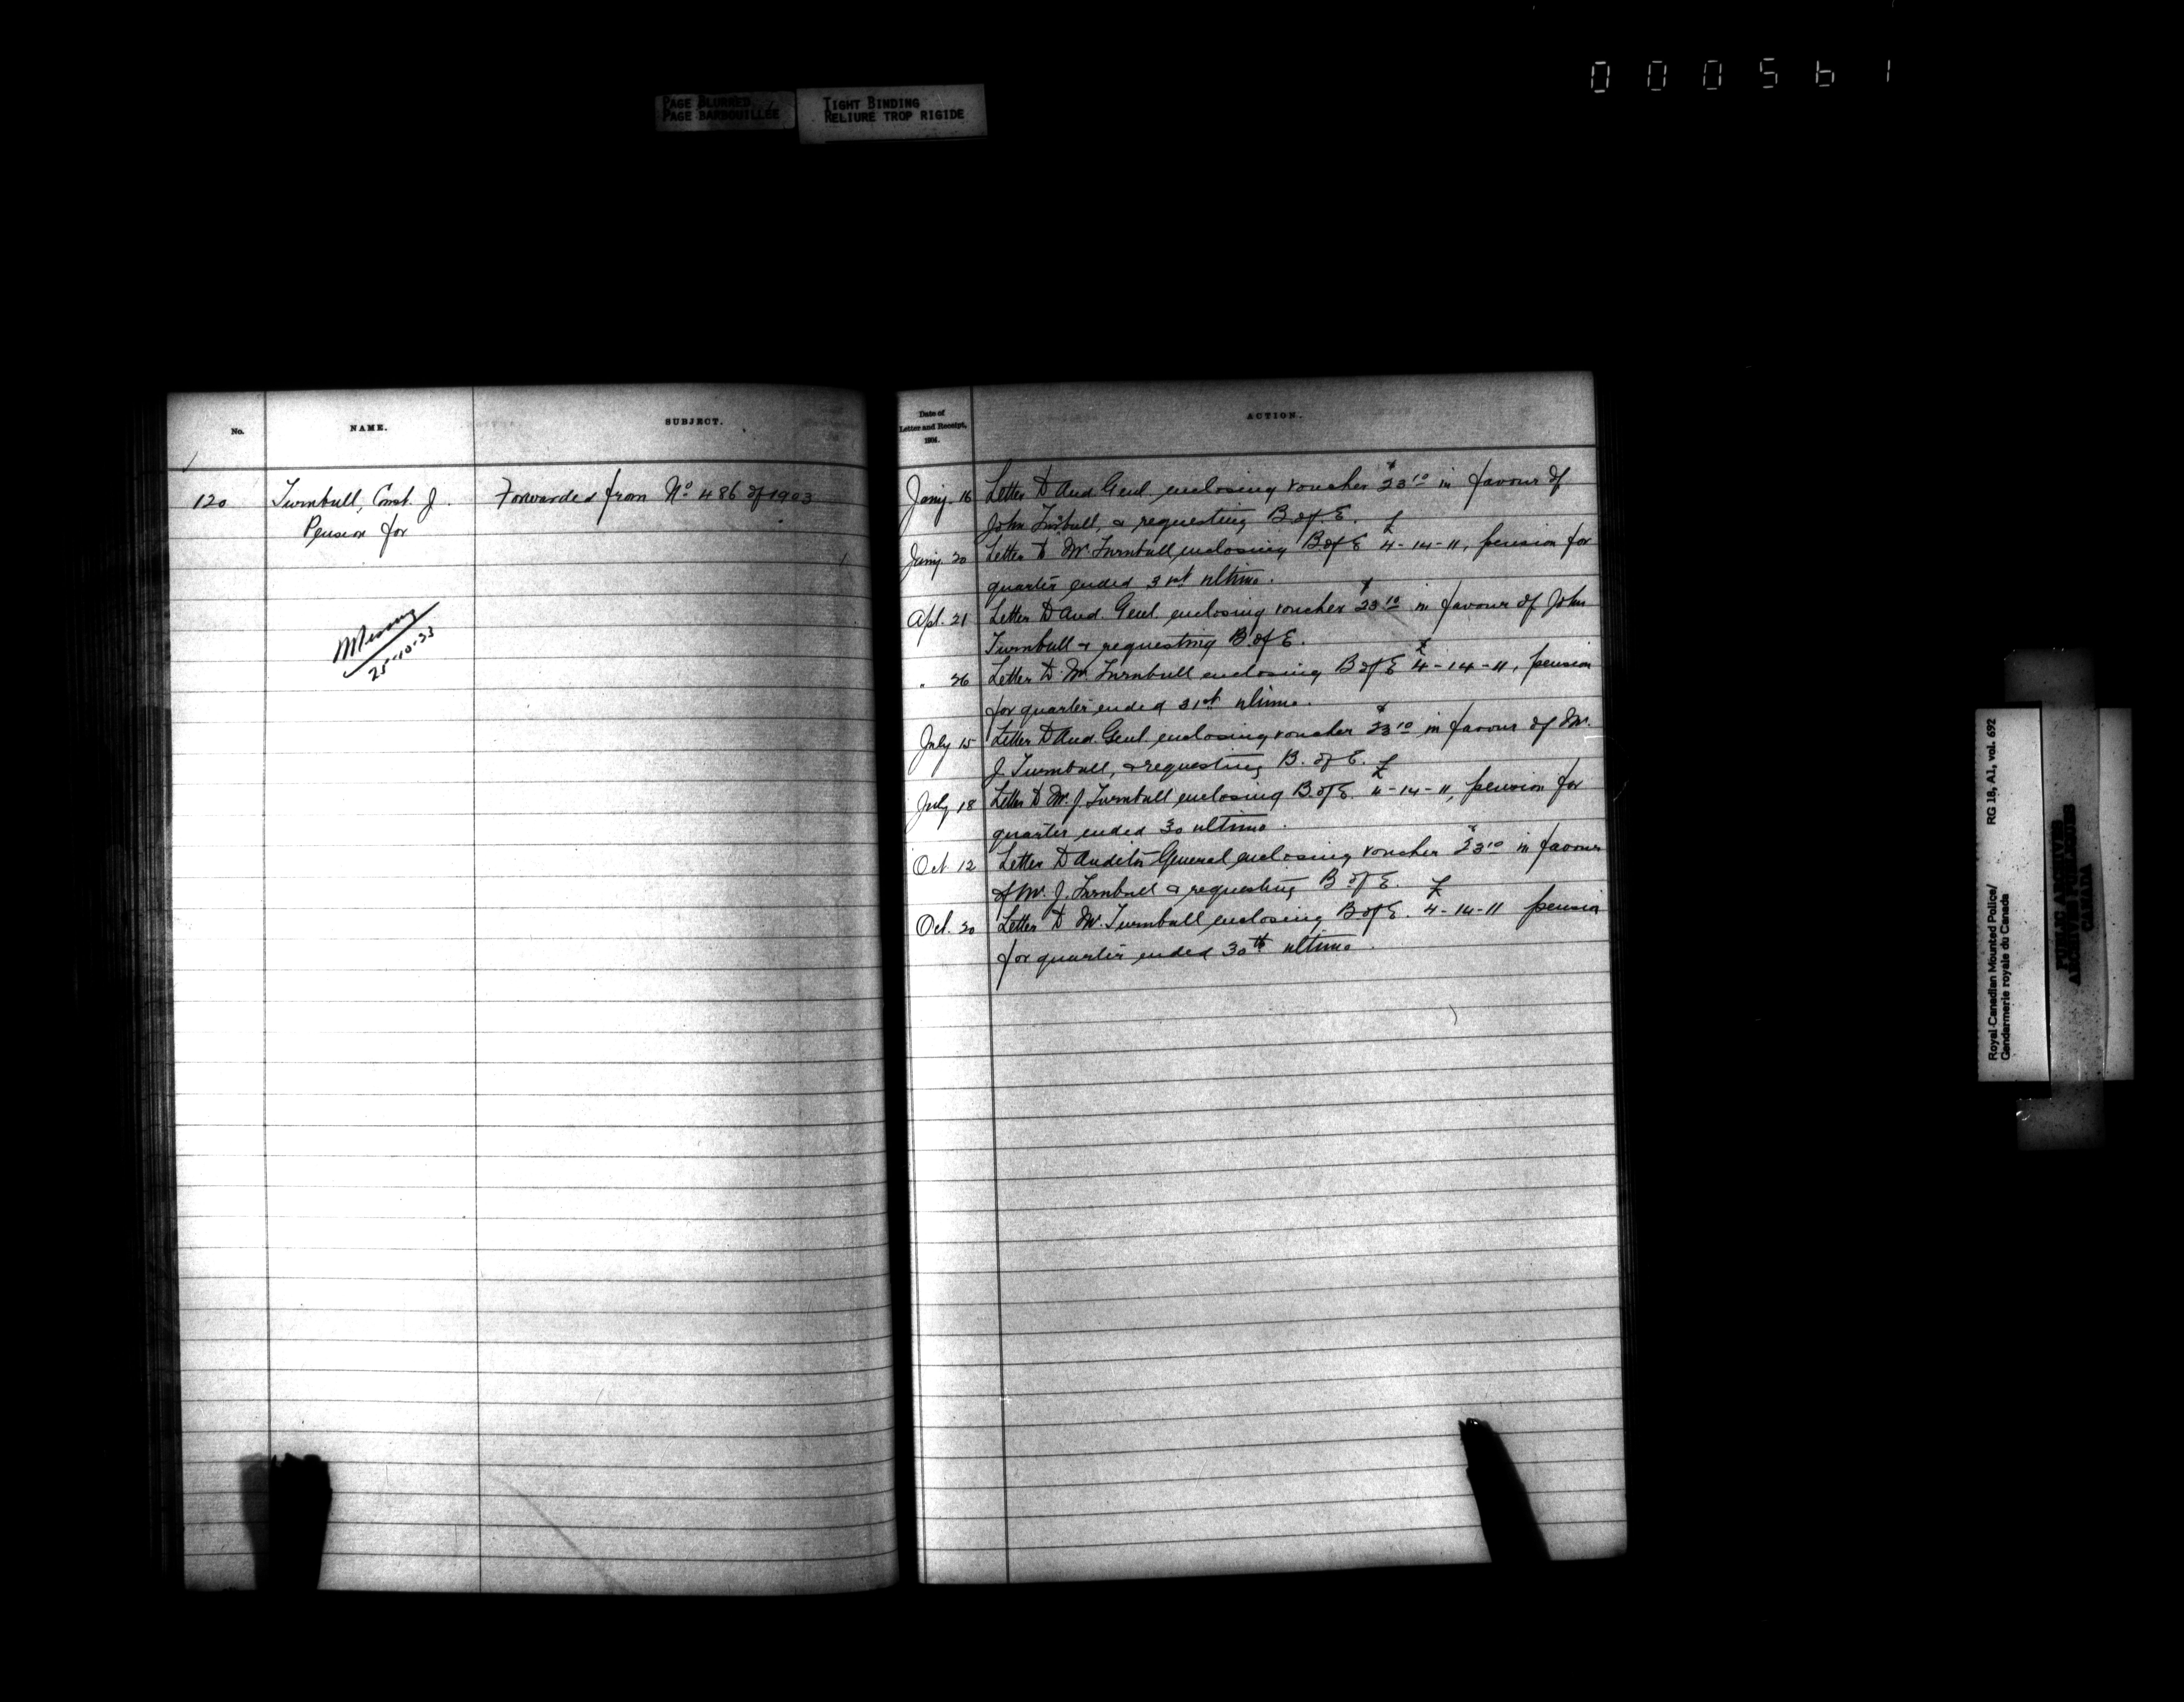 0 0 0 5 6 1
PAGE BLURRED
PAGE BARBOUILLÉE
TIGHT BINDING
RELIURE TROP RIGIDE
No.
NAME.
SUBJECT.
120
Turnbull, Const. J.
Pension for
Forwarded from No 486 of 1903
Missing
25-10-33
Date of
Letter and Receipt,
1904.
ACTION.
Jany. 16 Letter to Aud. Genl. enclosing voucher $23 10 in favour of
John Turnbull, & requesting B. of E.
Jany. 20 Letter to Mr Turnbull enclosing B of E £4-14-11, pension for
quarter ended 31st ultimo.
Apl. 21 Letter to Aud. Genl. enclosing voucher $23 10 in favour of John
Turnbull & requesting B of E.
" 26 Letter to Mr. Turnbull enclosing B of E £4-14-11, pension
for quarter ended 31st ultimo.
July 15 Letter to Aud. Genl. enclosing voucher $23 10 in favour of Mr.
J. Turnbull, & requesting B. of E.
July 18 Letter to Mr. J. Turnbull enclosing B. of E. £4-14-11, pension for
quarter ended 30 ultimo.
Oct 12 Letter to Auditor General enclosing voucher $23 10 in favour
of Mr. J. Turnbull & requesting B of E.
Oct. 20 Letter to Mr. Turnbull enclosing B of E. £4-14-11 pension
for quarter ended 30th ultimo.
Royal Canadian Mounted Police/
Gendarmerie royale du Canada
RG 18, A1, vol. 692
PUBLIC ARCHIVES
ARCHIVES PUBLIQUES
CANADA